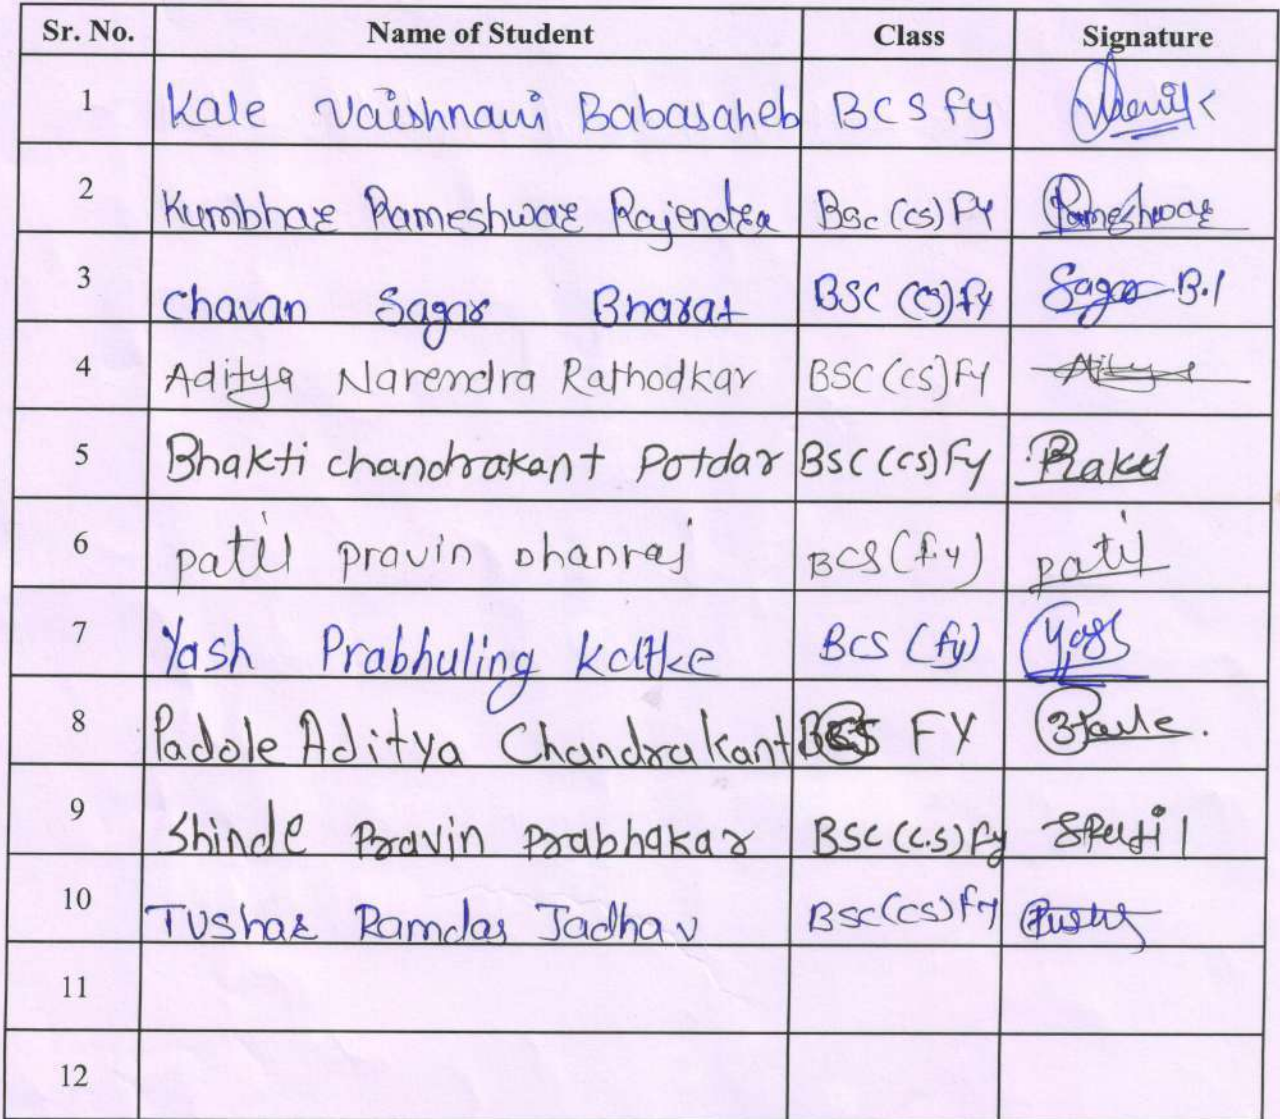 Sr. No. Name of Student Class Signature
1 Kale Vaishnavi Babasaheb BCS fy
2 Kumbhar Rameshwar Rajendra BSc (CS) FY Rameshwar
3 Chavan Sagar Bharat BSC (CS) fy Sagar B.
4 Aditya Narendra Rathodkar BSC (CS) FY Aditya
5 Bhakti chandrakant Potdar BSC (CS) Fy
6 patil pravin Dhanraj BCS (fy) patil
7 Yash Prabhuling BCS (fy) Yash
8 Padole Aditya Chandrakant BCS FY
9 Shinde Pravin Prabhakar BSC (C.S) Fy
10 Tushar Ramdas Jadhav BSC (CS) Fy
11
12